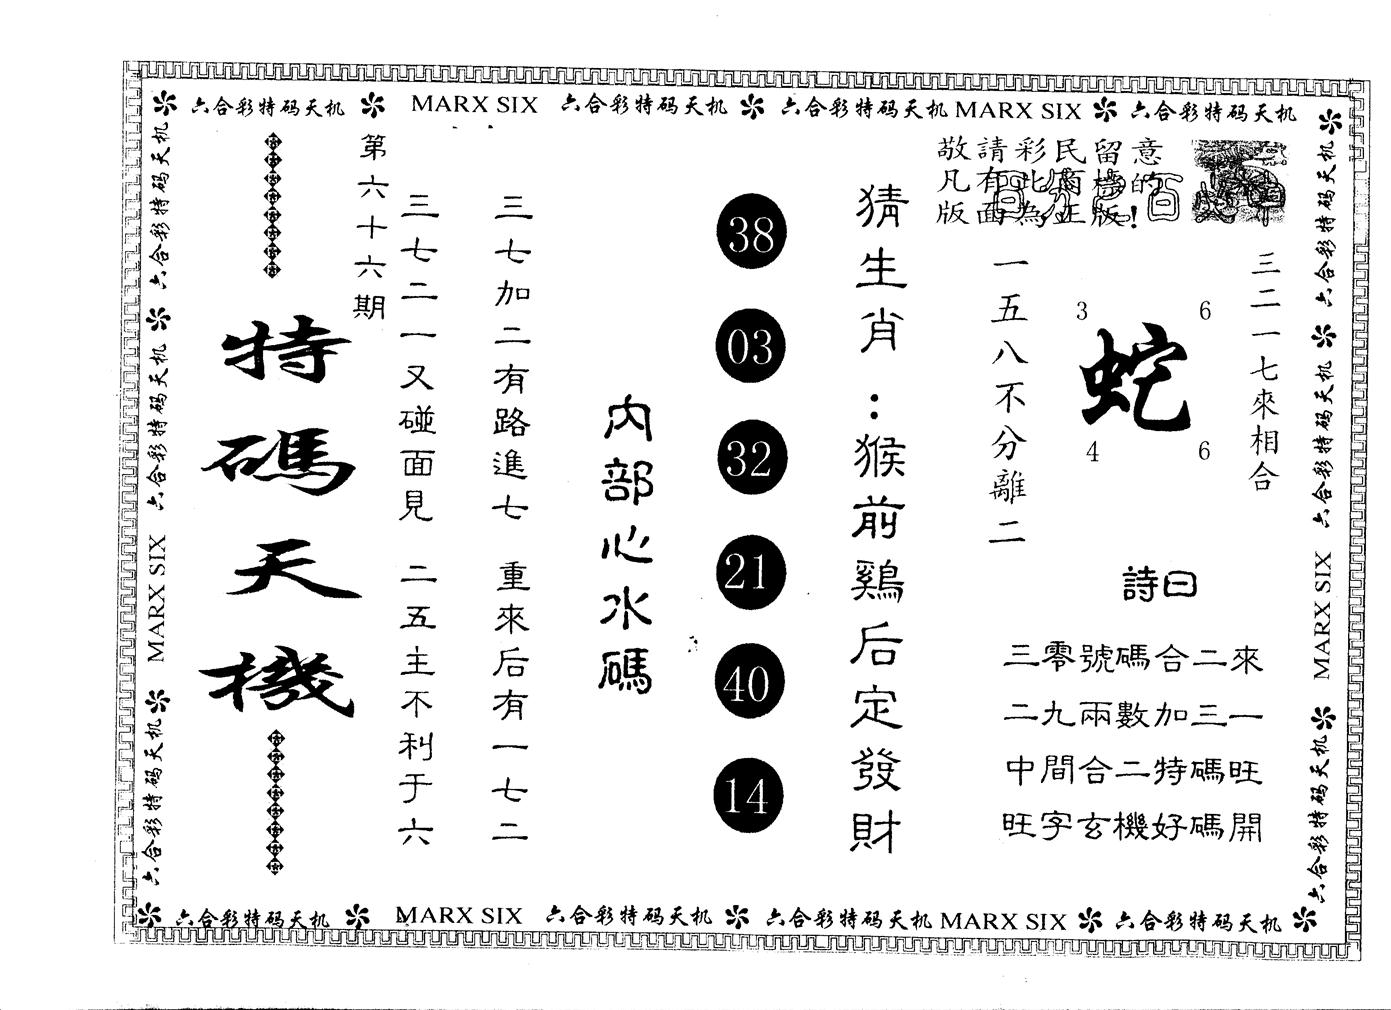 六合彩特码天机 MARX SIX 六合彩特码天机 六合彩特码天机 MARX SIX 六合彩特码天机
敬請彩民留意
凡有此商標的
版面為正版！
第六十六期
特碼天機
三七二一又碰面見 二五主不利于六
三七加二有路進七 重來后有一七二
內部心水碼
38
03
32
21
40
14
猜生肖：猴前鷄后定發財
一五八不分離二
3 6
蛇
4 6
三二一七來相合
詩曰
三零號碼合二來
二九兩數加三一
中間合二特碼旺
旺字玄機好碼開
六合彩特码天机 六合彩特码天机 MARX SIX 六合彩特码天机
六合彩特码天机 六合彩特码天机 MARX SIX 六合彩特码天机
六合彩特码天机 MARX SIX 六合彩特码天机 六合彩特码天机 MARX SIX 六合彩特码天机